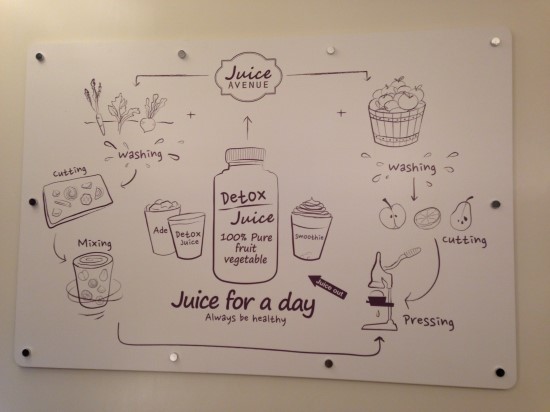 Juice
AVENUE
Washing
Washing
Cutting
Cutting
Mixing
Ade
Detox
Juice
Detox
Juice
100% Pure
fruit
vegetable
Smoothie
Juice out
Pressing
Juice for a day
Always be healthy